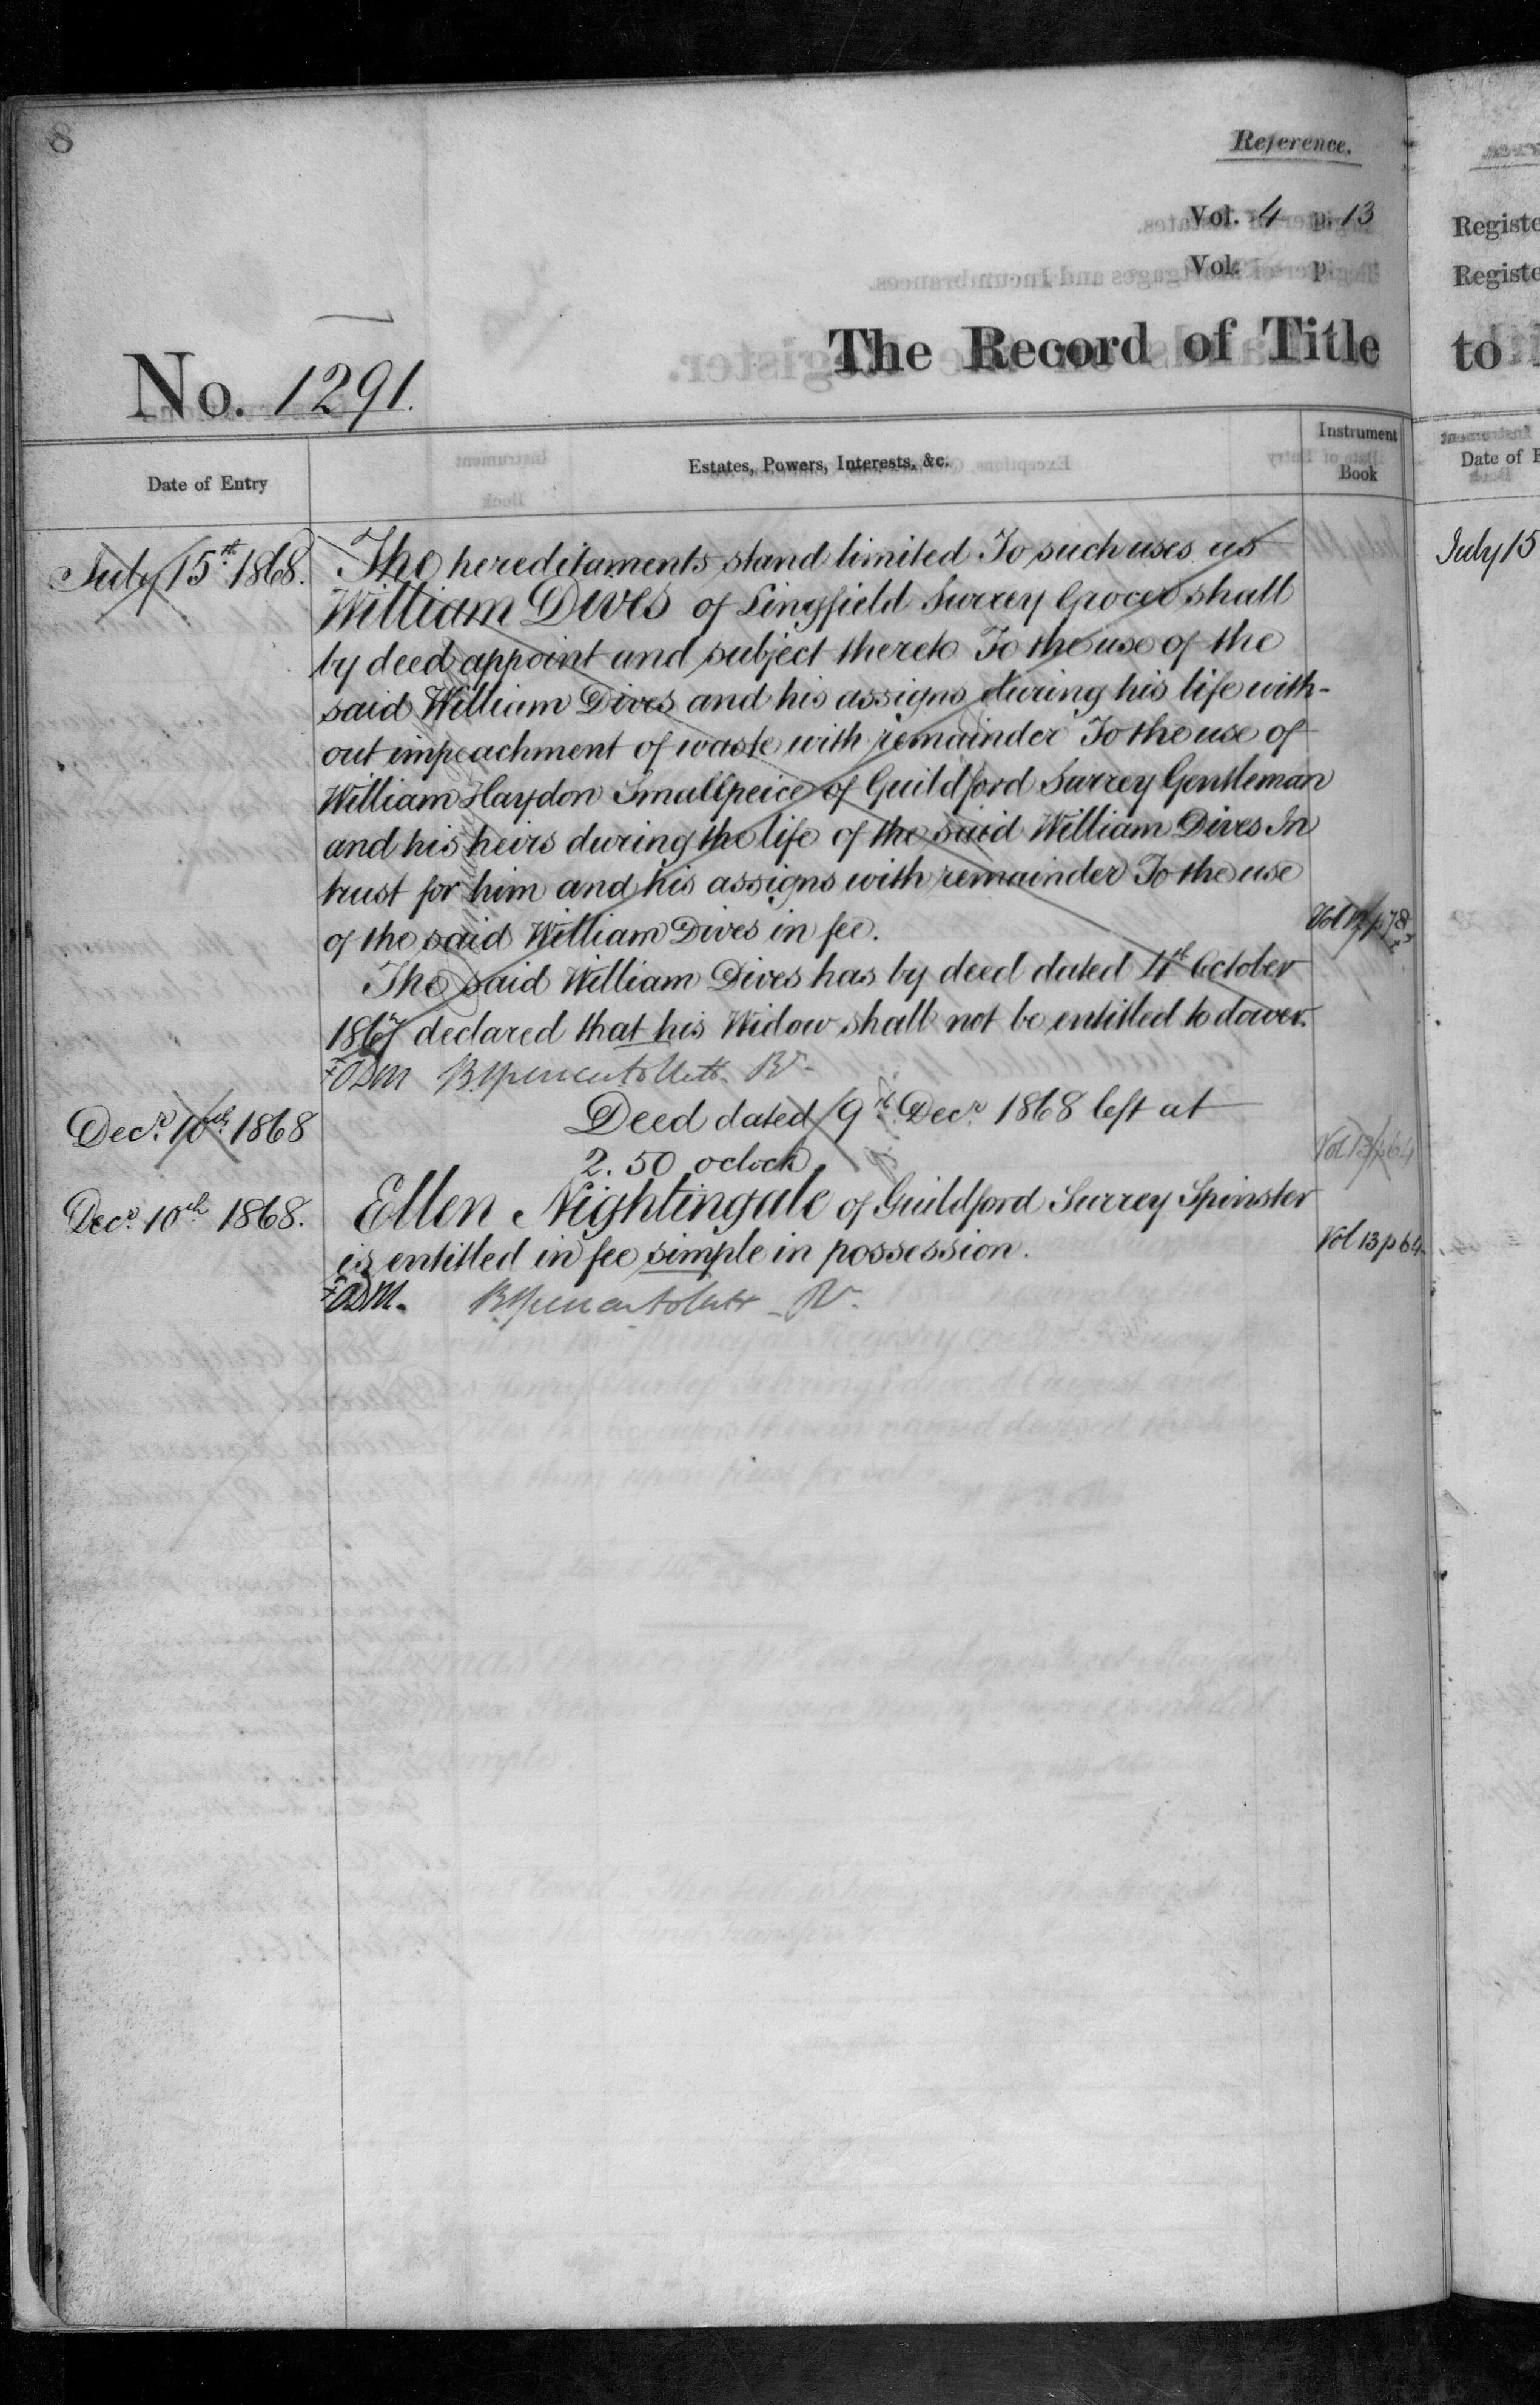 8
Reference.
Vol. 4 p. 13
Vol. p.
The Record of Title
No. 1291.
Date of Entry
Estates, Powers, Interests, &c.
Instrument
Book
July 15th 1868. The hereditaments stand limited To such uses as
William Dives of Lingfield Surrey Grocer shall
by deed appoint and subject thereto To the use of the
said William Dives and his assigns during his life with-
out impeachment of waste with remainder To the use of
William Haydon Smallpeice of Guildford Surrey Gentleman
and his heirs during the life of the said William Dives In
trust for him and his assigns with remainder To the use
of the said William Dives in fee.
The said William Dives has by deed dated 4th October
1867 declared that his Widow shall not be entitled to dower.
Decr. 10th 1868 Deed dated 9th Decr. 1868 left at
2.50 oclock
Vol 13 p 64
Decr. 10th 1868. Ellen Nightingale of Guildford Surrey Spinster
is entitled in fee simple in possession. Vol 13 p 64.
Registe
Registe
to
Date of E
July 15